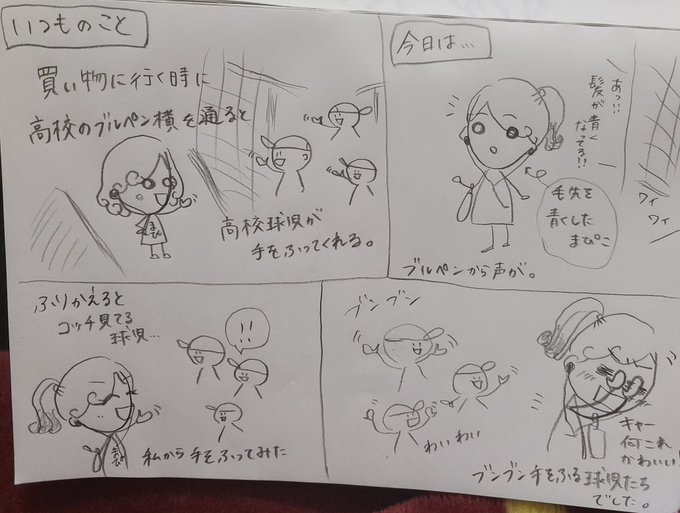 いつものこと
買い物に行く時に
高校のブルペン横を通ると
高校球児が
手をふってくれる。
今日は…
あっ!!
髪が青く
なってる!!
ワイ
ワイ
毛先を
青くした
まぴこ
ブルペンから声が。
ふりかえると
コッチ見てる
球児…
!!
私から手をふってみた
ブンブン
わいわい
キャー
何これ
かわいい!
ブンブン手をふる球児たち
でした。